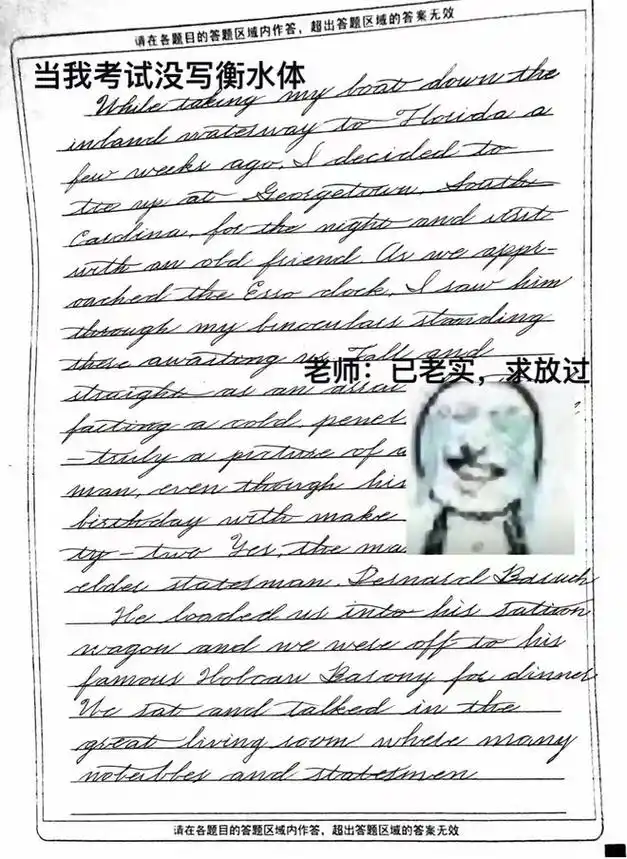 请在各题目的答题区域内作答，超出答题区域的答案无效
当我考试没写衡水体
While taking my boat down the
inland waterway to Florida a
few weeks ago, I decided to
tie up at Georgetown, South
Carolina, for the night and visit
with an old friend. As we appr-
oached the Esso dock, I saw him
through my binoculars standing
there awaiting us. Tall and
老师：已老实，求放过
straight as an
facing a cold, penet
-truly a picture of a
man, even though his
birthday with make
ty-two Yes, the ma
elder statesman, Bernard Baruch
He loaded us into his sation
wagon and we were off to his
famous Hobcaw Barony for dinner
We sat and talked in the
great living room where many
notebbes and statesmen
请在各题目的答题区域内作答，超出答题区域的答案无效